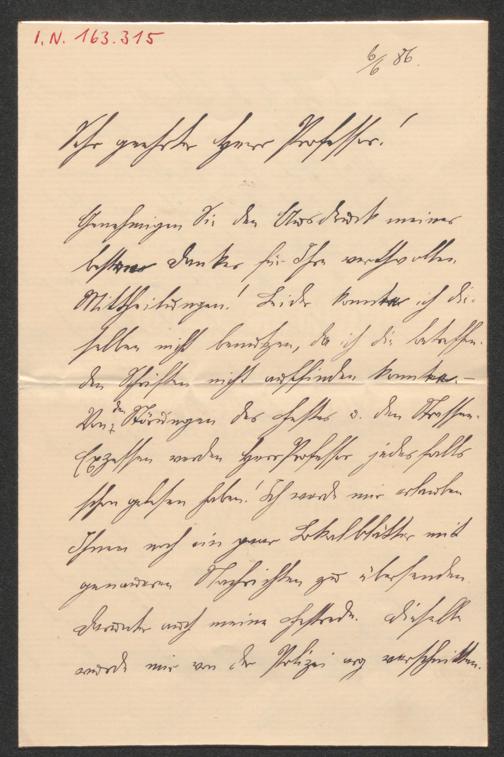 I.N. 163.315
6/6 86.
Sehr geehrter Herr Professor!
Genehmigen Sie den Ausdruck meines
besten Dankes für Ihre werthvollen
Mittheilungen! Leider konnte ich die-
selben nicht benutzen, da ich die betreffen-
den Schriften nicht auffinden konnte. –
Von den Störungen des Festes u. den Strassen-
Exzessen werden Herr Professor jedesfalls
schon gelesen haben! Ich werde mir erlauben
Ihnen noch ein paar Lokalblätter mit
genaueren Nachrichten zu übersenden
darunter auch meine Festrede. Dieselbe
wurde mir von der Polizei arg verschnitten.